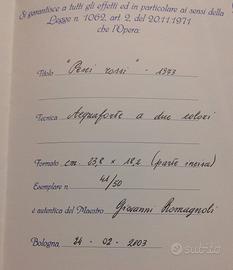 Si garantisce a tutti gli effetti ed in particolare ai sensi della
Legge n. 1062, art. 2, del 20.11.1971
che l'Opera:
Titolo "Pesci rossi" - 1973
Tecnica Acquaforte a due colori
Formato cm. 23,8 x 18,2 (parte incisa)
Esemplare n. 41/50
è autentica del Maestro Giovanni Romagnoli
Bologna, 24 - 02 - 2003
subito